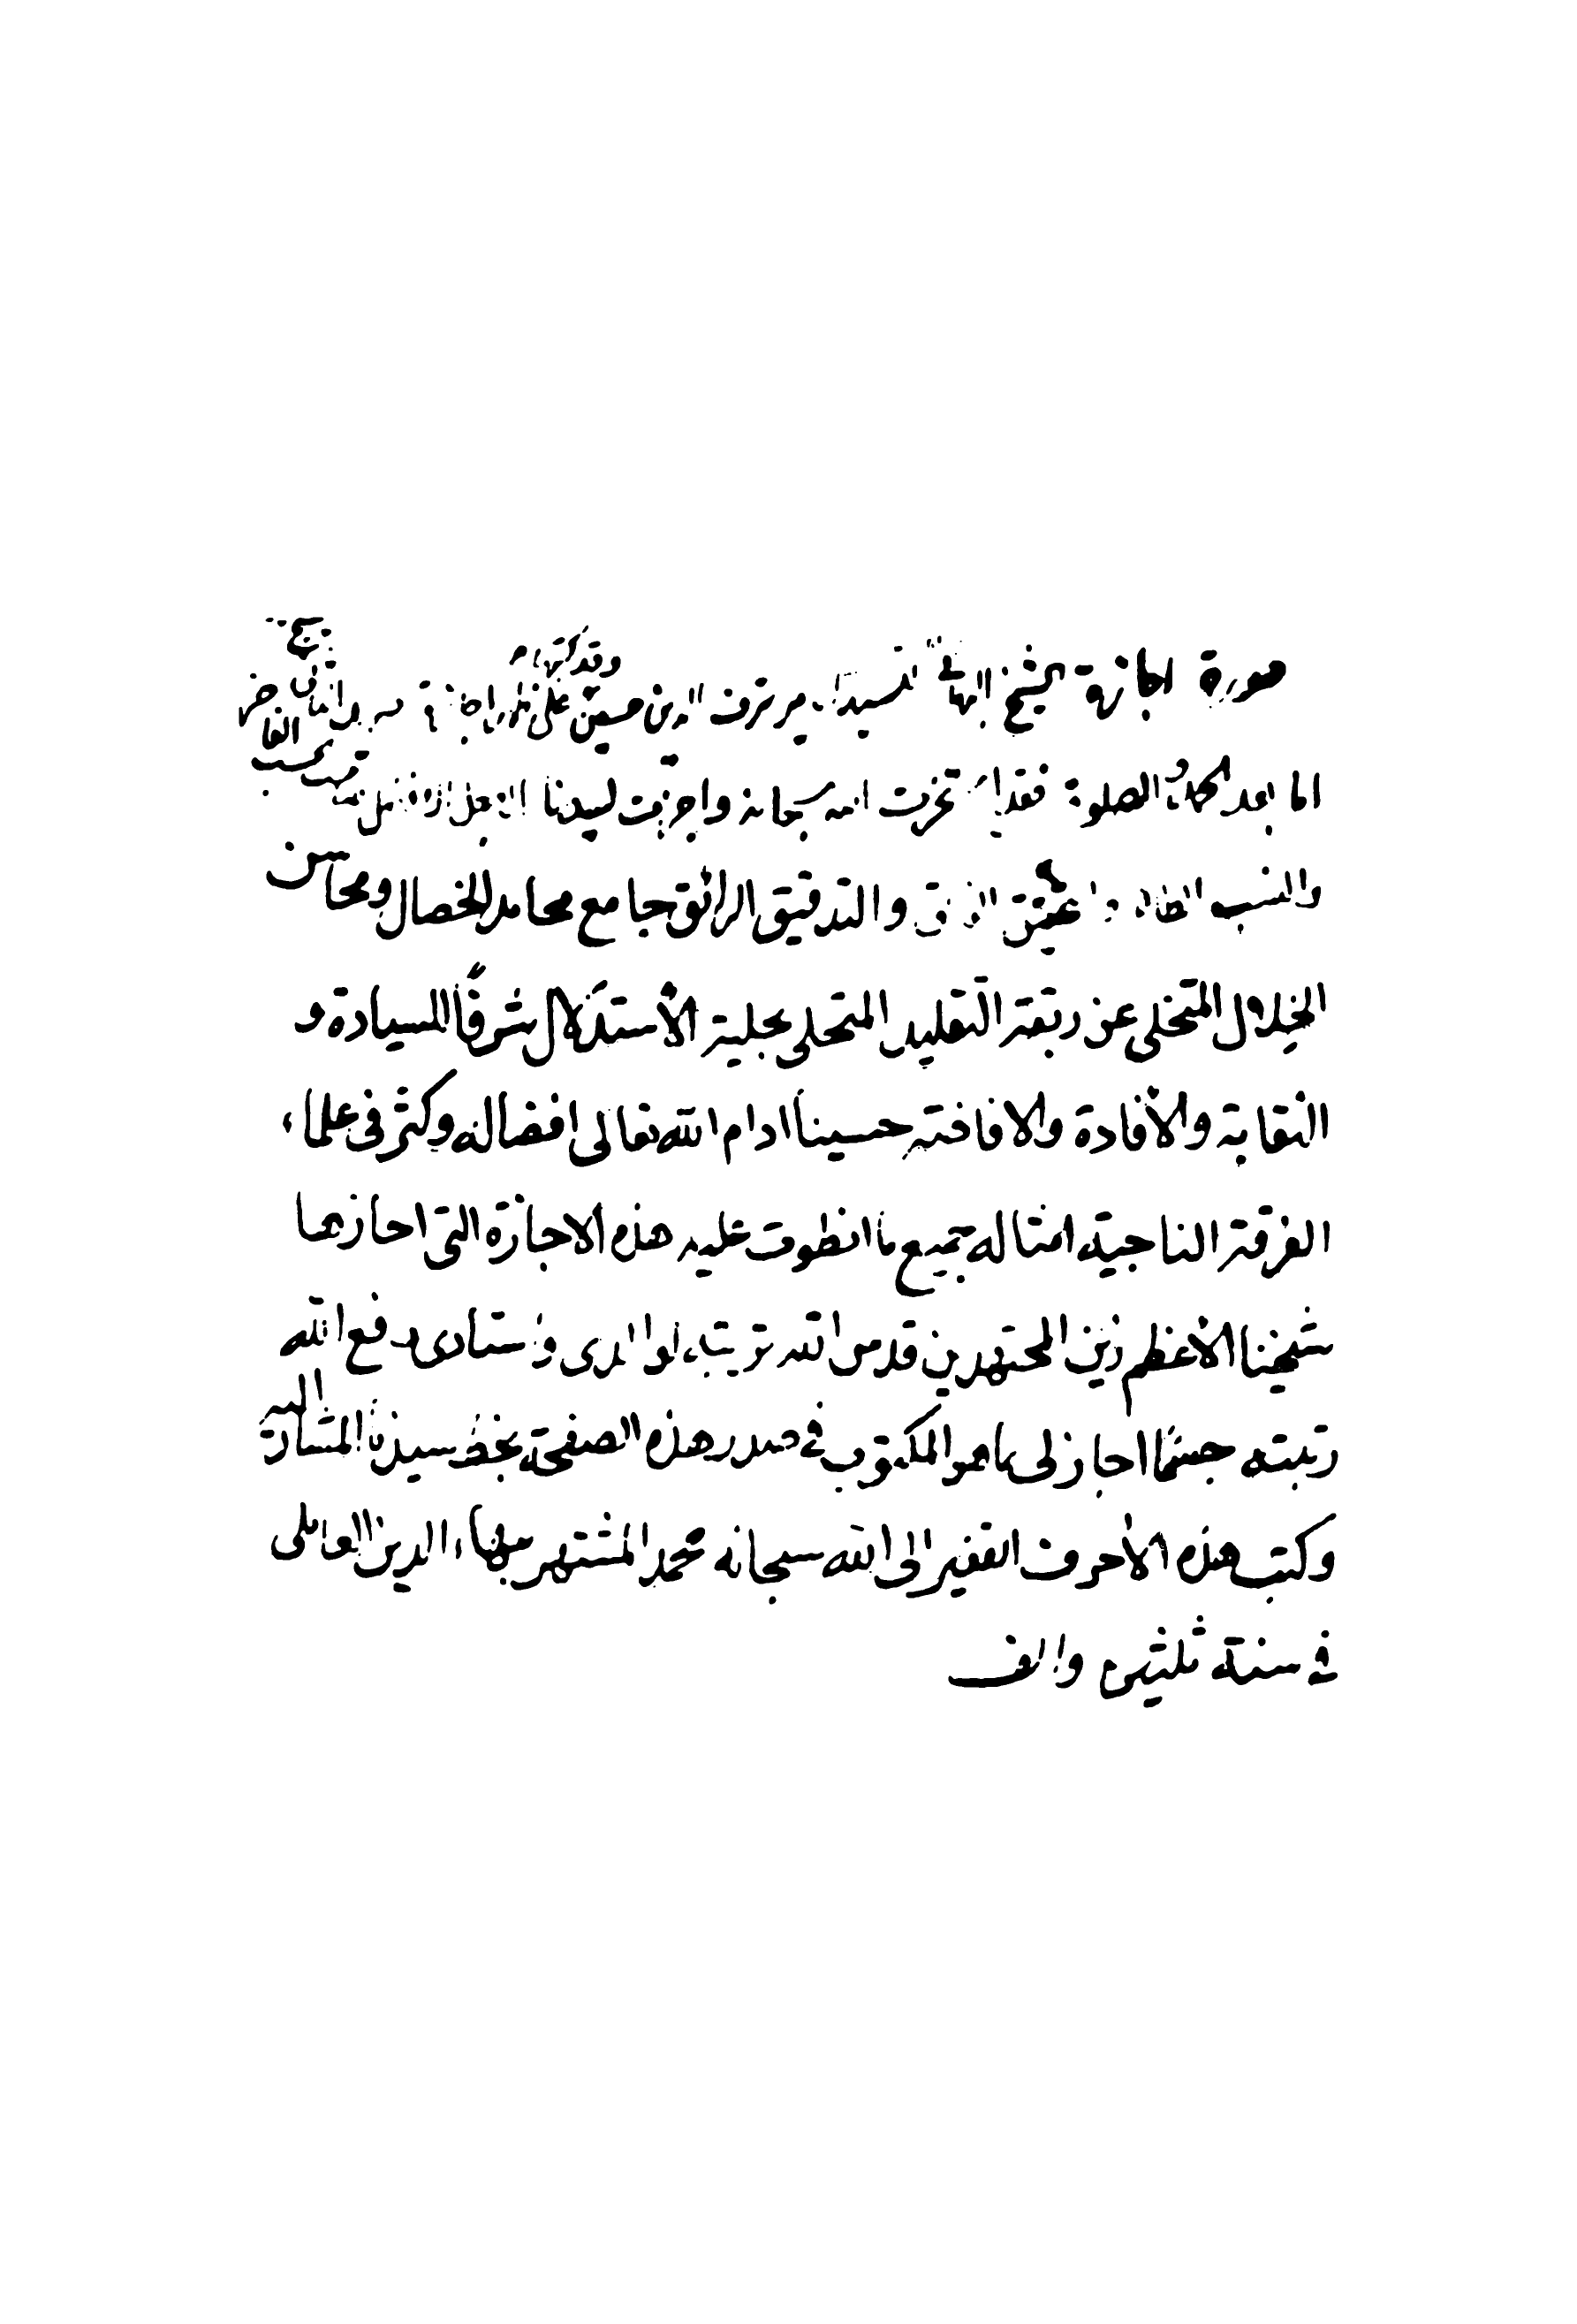 صورة اجازة الشيخ البهائي للسيد مير شرف الدين حسين وقد كتبها على اجازة
اما بعد الحمد والصلوة فقد استخرت الله سبحانه واجزت لسيدنا الاجل الافضل
والنسب والتدقيق الرائق جامع محامد الخصال ومحاسن
الخلال المتخلى عن ربقة التقليد المتحلى بحلية الاستدلال شرفا للسيادة و
النقابة والافادة والافاضة حسينا ادام الله تعالى افضاله وكثر فى علماء
الفرقة الناجية امثاله بجميع ما انطوت عليه هذه الاجازة التى اجازها
شيخنا الاعظم زين المجتهدين قدس الله تربته لوالدى واستادى رفع الله
رتبته حسبما اجاز لى ما هو المكتوب فى صدر هذه الصفحة بخط سيدنا المشار اليه
وكتب هذه الاحرف الفقير الى الله سبحانه محمد المشتهر ببهاء الدين العاملى
فى سنة ثلثين والف